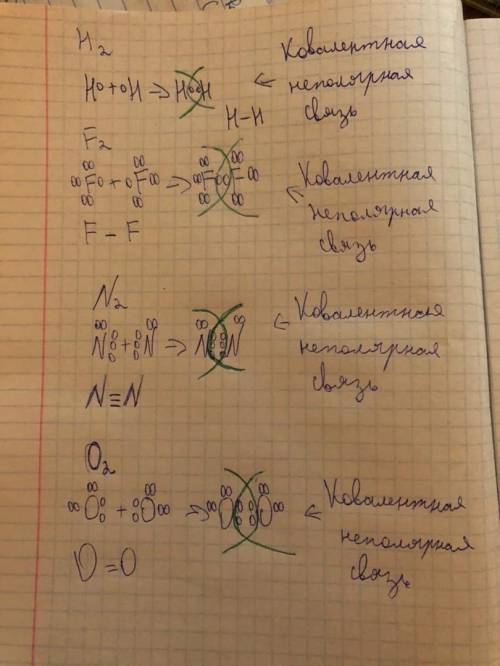 H2
H + H → H H
H-H
Ковалентная
неполярная
связь
F2
F + F → F F
F - F
Ковалентная
неполярная
связь
N2
N + N → N N
N≡N
Ковалентная
неполярная
связь
O2
O + O → O O
O=O
Ковалентная
неполярная
связь